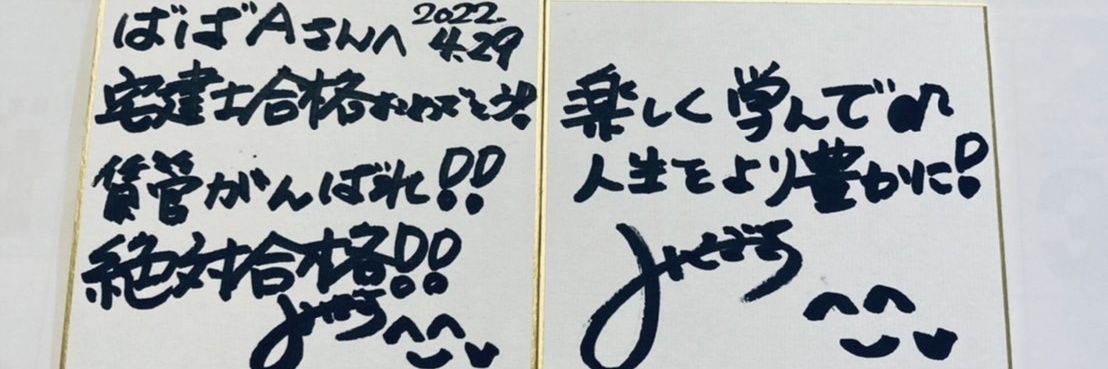 ばばAさんへ 2022.
4.29
宅建士合格おめでとう!
賃管がんばれ!!
絶対合格!!
楽しく学んで♫
人生をより豊かに!